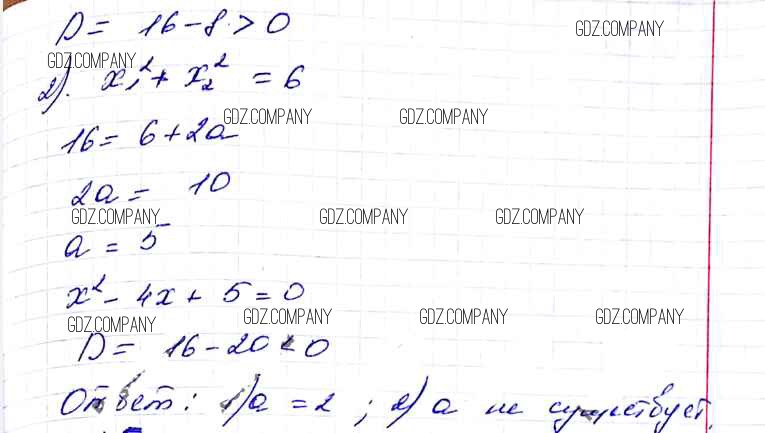 D = 16 - 8 > 0
GDZ.COMPANY
GDZ.COMPANY
2). x₁² + x₂² = 6
GDZ.COMPANY GDZ.COMPANY
16 = 6 + 2a
2a = 10
GDZ.COMPANY GDZ.COMPANY GDZ.COMPANY
a = 5
x² - 4x + 5 = 0
GDZ.COMPANY GDZ.COMPANY GDZ.COMPANY GDZ.COMPANY
D = 16 - 20 < 0
Ответ: 1) a = 2 ; 2) a не существует.